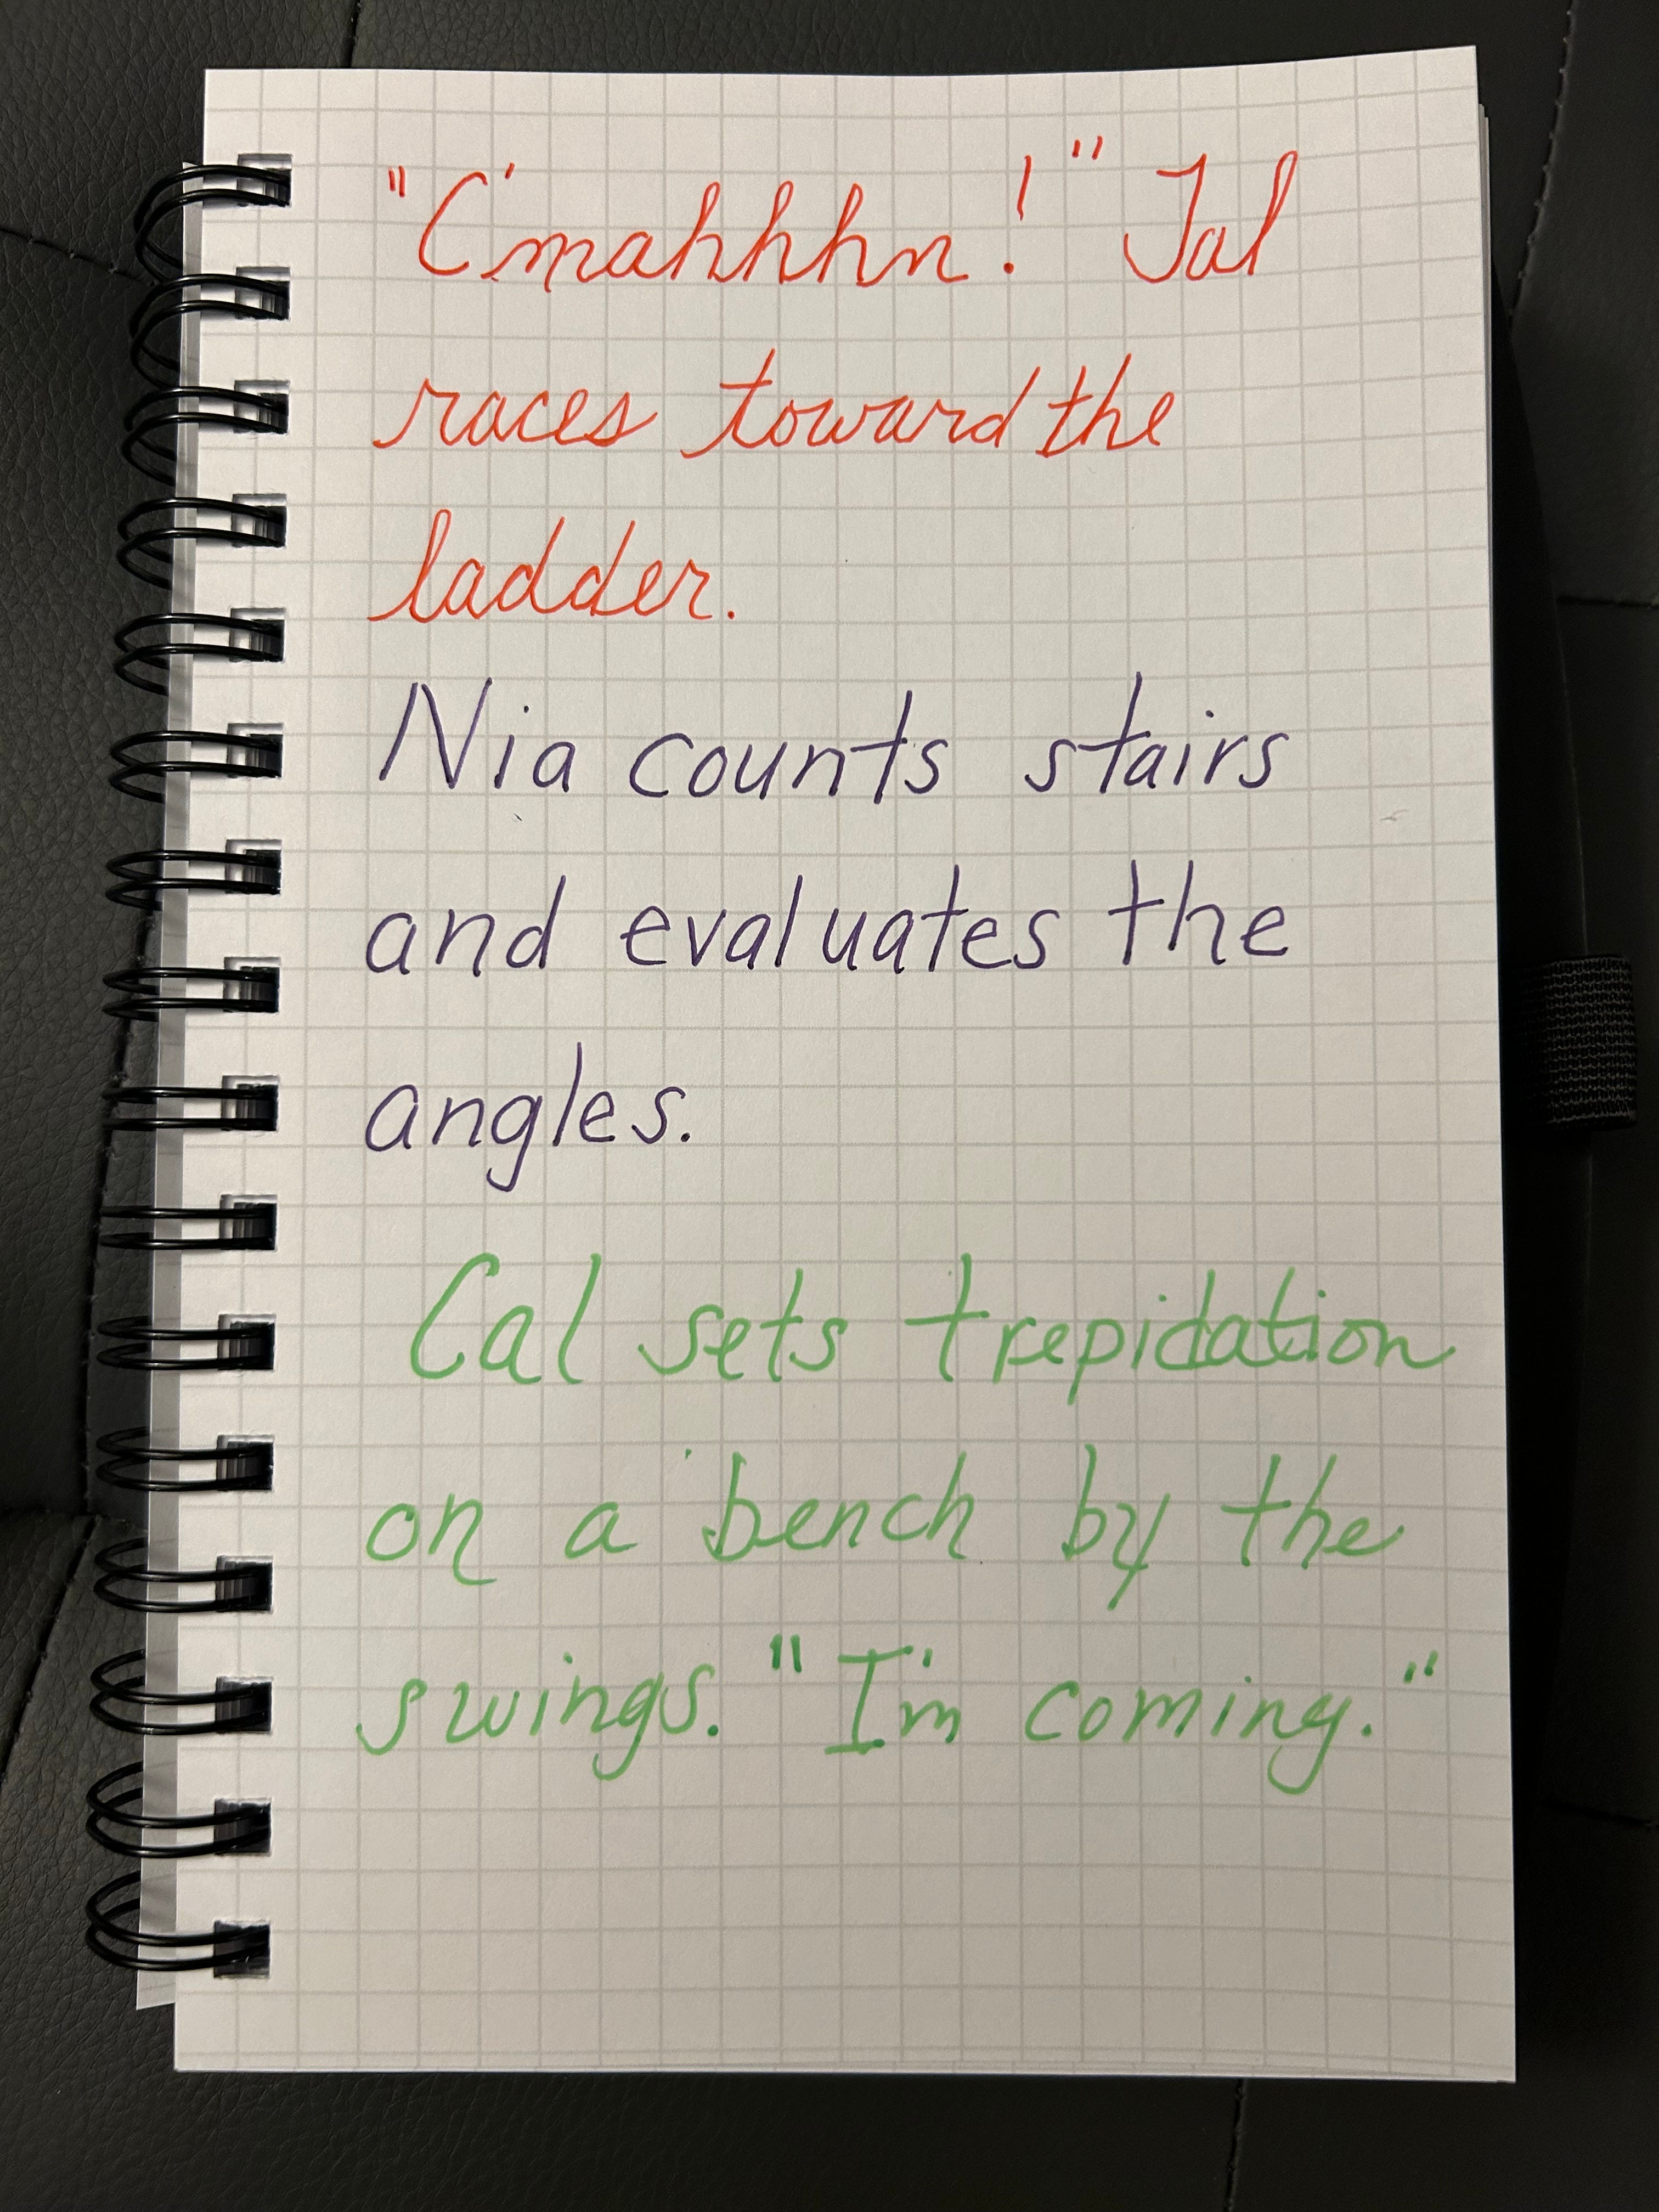 "C'mahhhn!" Jal
races toward the
ladder.
Nia counts stairs
and evaluates the
angles.
Cal sets trepidation
on a bench by the
swings. "I'm coming."